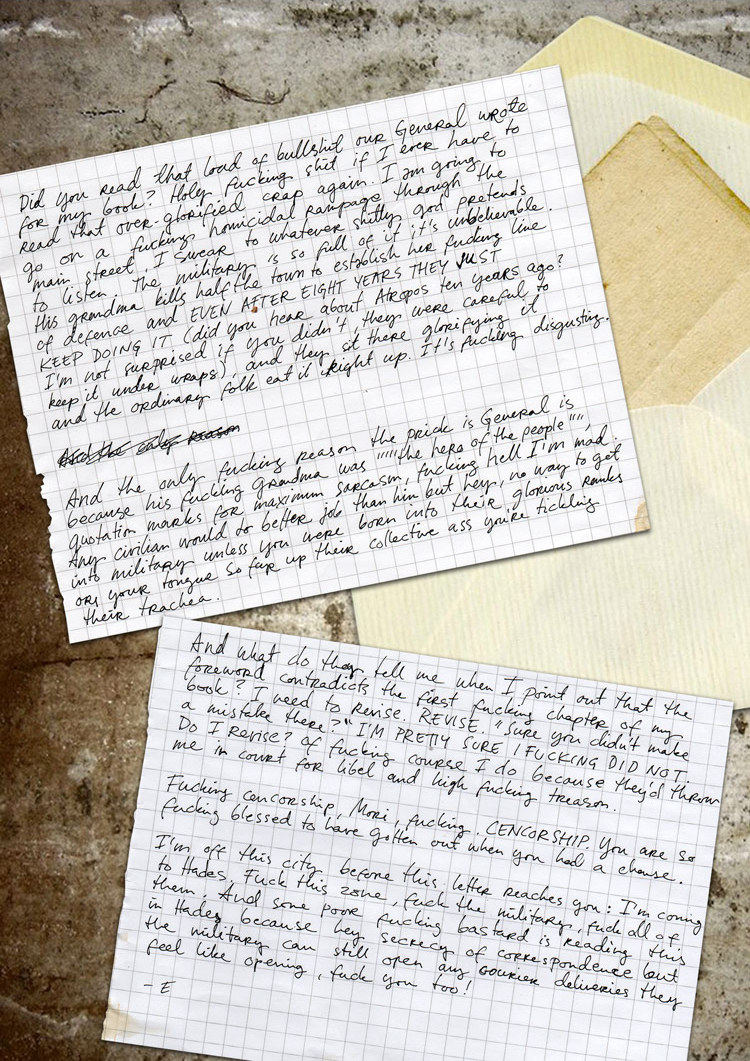 Did you read that load of bullshit our General wrote
for my book? Holy fucking shit if I ever have to
read that over-glorified crap again I am going to
go on a fucking homicidal rampage through the
main street, I swear to whatever shitty god pretends
to listen. The military is so full of it it's unbelievable.
His grandma kills half the town to establish her fucking line
of defence and EVEN AFTER EIGHT YEARS THEY JUST
KEEP DOING IT (did you hear about Atropos ten years ago?
I'm not surprised if you didn't, they were careful to
keep it under wraps), and they sit there glorifying it
and the ordinary folk eat it right up. It's fucking disgusting.
And the only reason
And the only fucking reason the prick is General is
because his fucking grandma was """"the hero of the people"""",
quotation marks for maximum sarcasm, fucking hell I'm mad.
Any civilian would do better job than him but hey, no way to get
into military unless you were born into their glorious ranks
or your tongue so far up their collective ass you're tickling
their trachea.
And what do they tell me when I point out that the
foreword contradicts the first fucking chapter of my
book? I need to revise. REVISE. "Sure you didn't make
a mistake there?" I'M PRETTY SURE I FUCKING DID NOT.
Do I revise? Of fucking course I do because they'd throw
me in court for libel and high fucking treason.
Fucking cencorship, Mori, fucking. CENCORSHIP. You are so
fucking blessed to have gotten out when you had a chanse.
I'm off this city before this letter reaches you: I'm coming
to Hades. Fuck this zone, fuck the military, fuck all of
them. And some poor fucking bastard is reading this
in Hades because hey secrecy of correspondence but
the military can still open any courier deliveries they
feel like opening, fuck you too!
- E